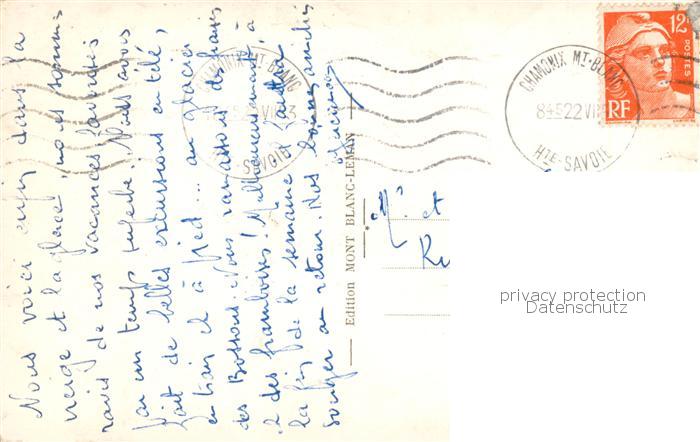 Nous voici enfin dans la
neige et la glace, nous sommes
ravis de nos vacances favorisées
par un temps superbe. Nous avons
fait de belles excursions en télé,
en train et à pied ... au glacier
des Bossons. Nous ramassons des fraises
et des framboises! Malheureusement à
la fin de la semaine il faudra
songer au retour. Nos bonnes amitiés
Edition MONT BLANC-LEMAN
CHAMONIX MT-BLANC
HTE-SAVOIE
CHAMONIX MT-BLANC
8H45 22 VII
HTE-SAVOIE
12F
POSTES
RF
et
privacy protection
Datenschutz